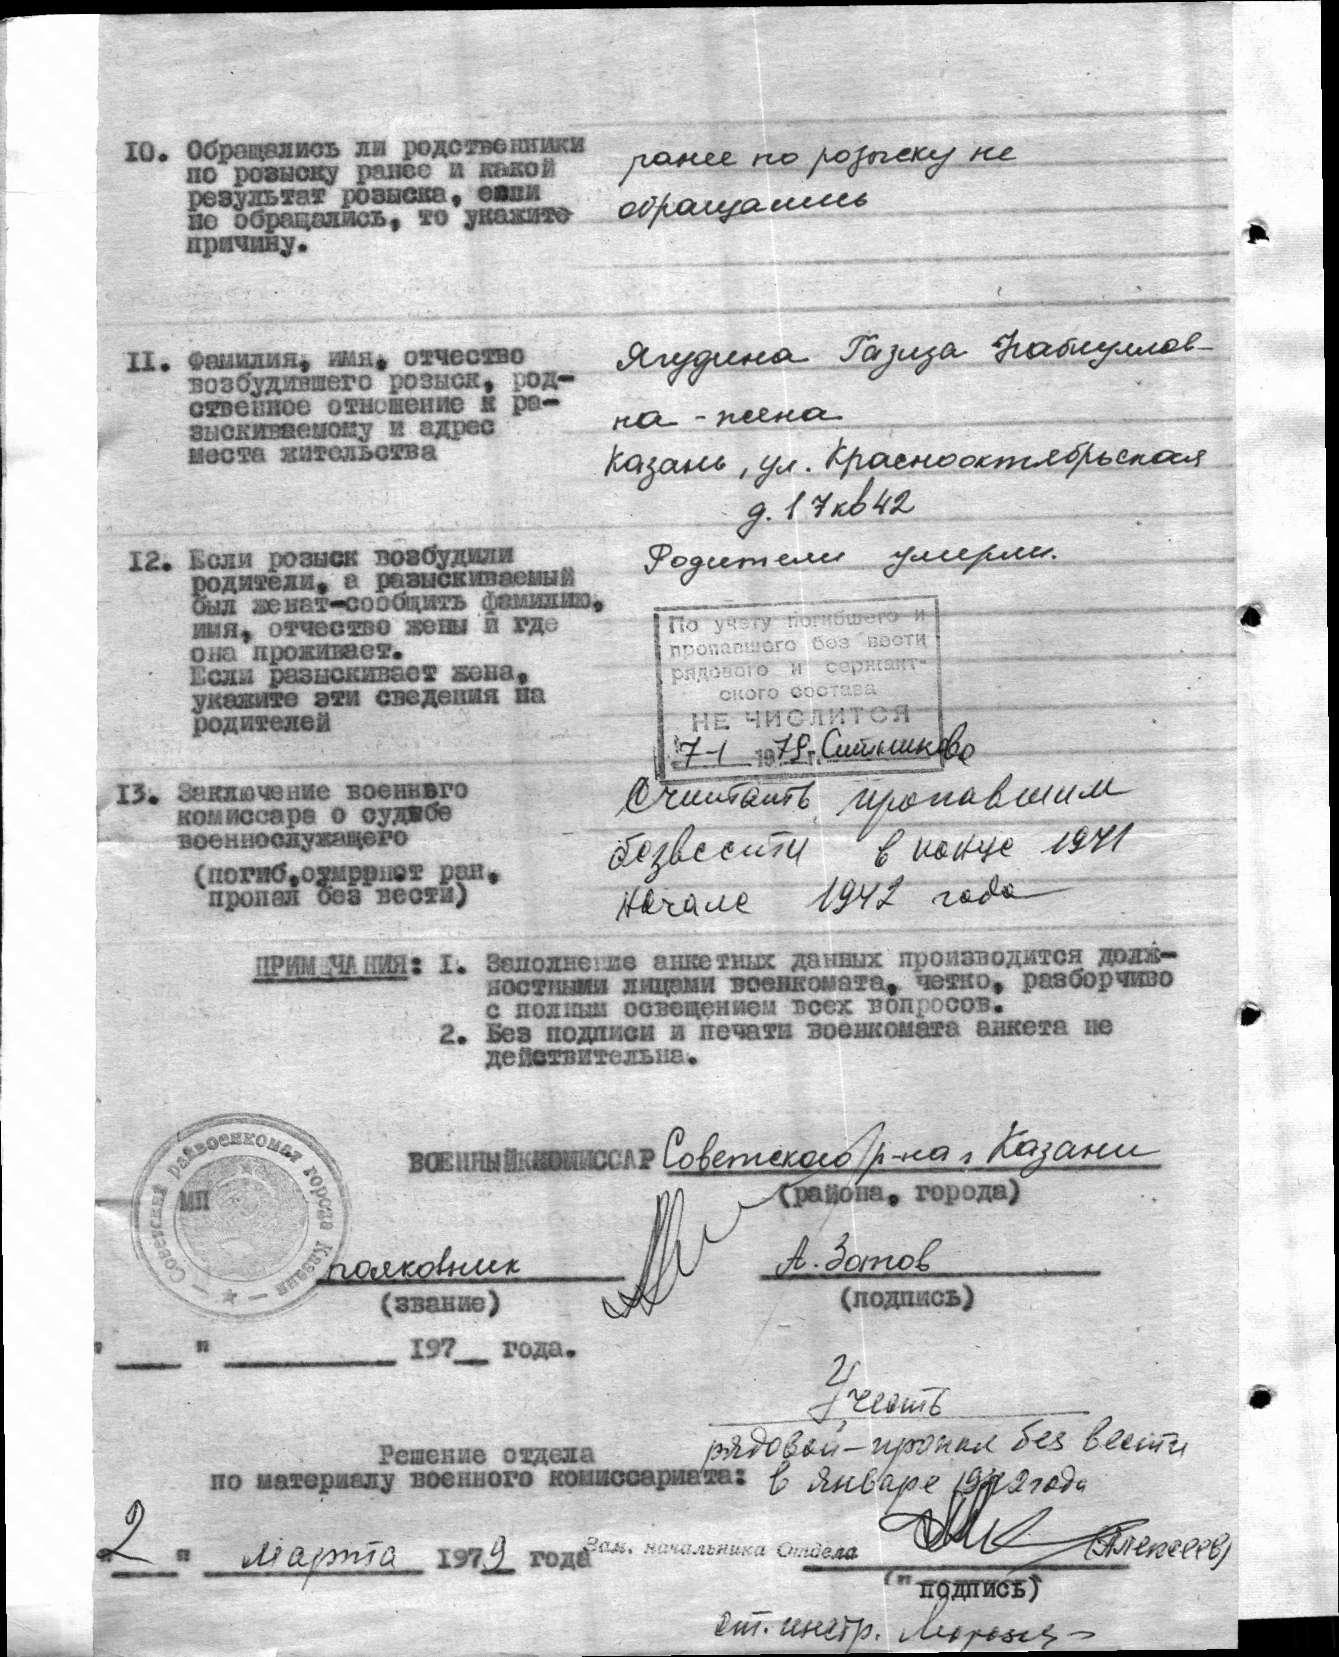 10. Обращались ли родственники
по розыску ранее и какой
результат розыска, если
не обращались, то укажите
причину.
ранее по розыску не
обращались
11. Фамилия, имя, отчество
возбудившего розыск, род-
ственное отношение к ра-
зыскиваемому и адрес
места жительства
Ягудина Газиза Набиуллов-
на - жена
Казань, ул. Краснооктябрьская
д. 17 кв 42
12. Если розыск возбудили
родители, а разыскиваемый
был женат-сообщить фамилию,
имя, отчество жены и где
она проживает.
Если разыскивает жена,
укажите эти сведения на
родителей
Родители умерли.
По учету погибшего и
пропавшего без вести
рядового и сержант-
ского состава
НЕ ЧИСЛИТСЯ
7-1 1979 г. Ситникова
13. Заключение военного
комиссара о судьбе
военнослужащего
(погиб, умер от ран,
пропал без вести)
Считать пропавшим
безвести в конце 1941
начале 1942 года
ПРИМЕЧАНИЯ: 1. Заполнение анкетных данных производится долж-
ностными лицами военкомата, четко, разборчиво
с полным освещением всех вопросов.
2. Без подписи и печати военкомата анкета не
действительна.
Советский райвоенкомат города Казани
МП
ВОЕННЫЙ КОМИССАР Советского р-на г. Казани
(района, города)
полковник А. Зотов
(звание) (подпись)
" " 197 года.
Учесть
рядовой - пропал без вести
в январе 1942 года
Решение отдела
по материалу военного комиссариата:
"2" марта 1979 года
Зам. начальника Отдела (Алексеев)
(подпись)
ст. инстр.